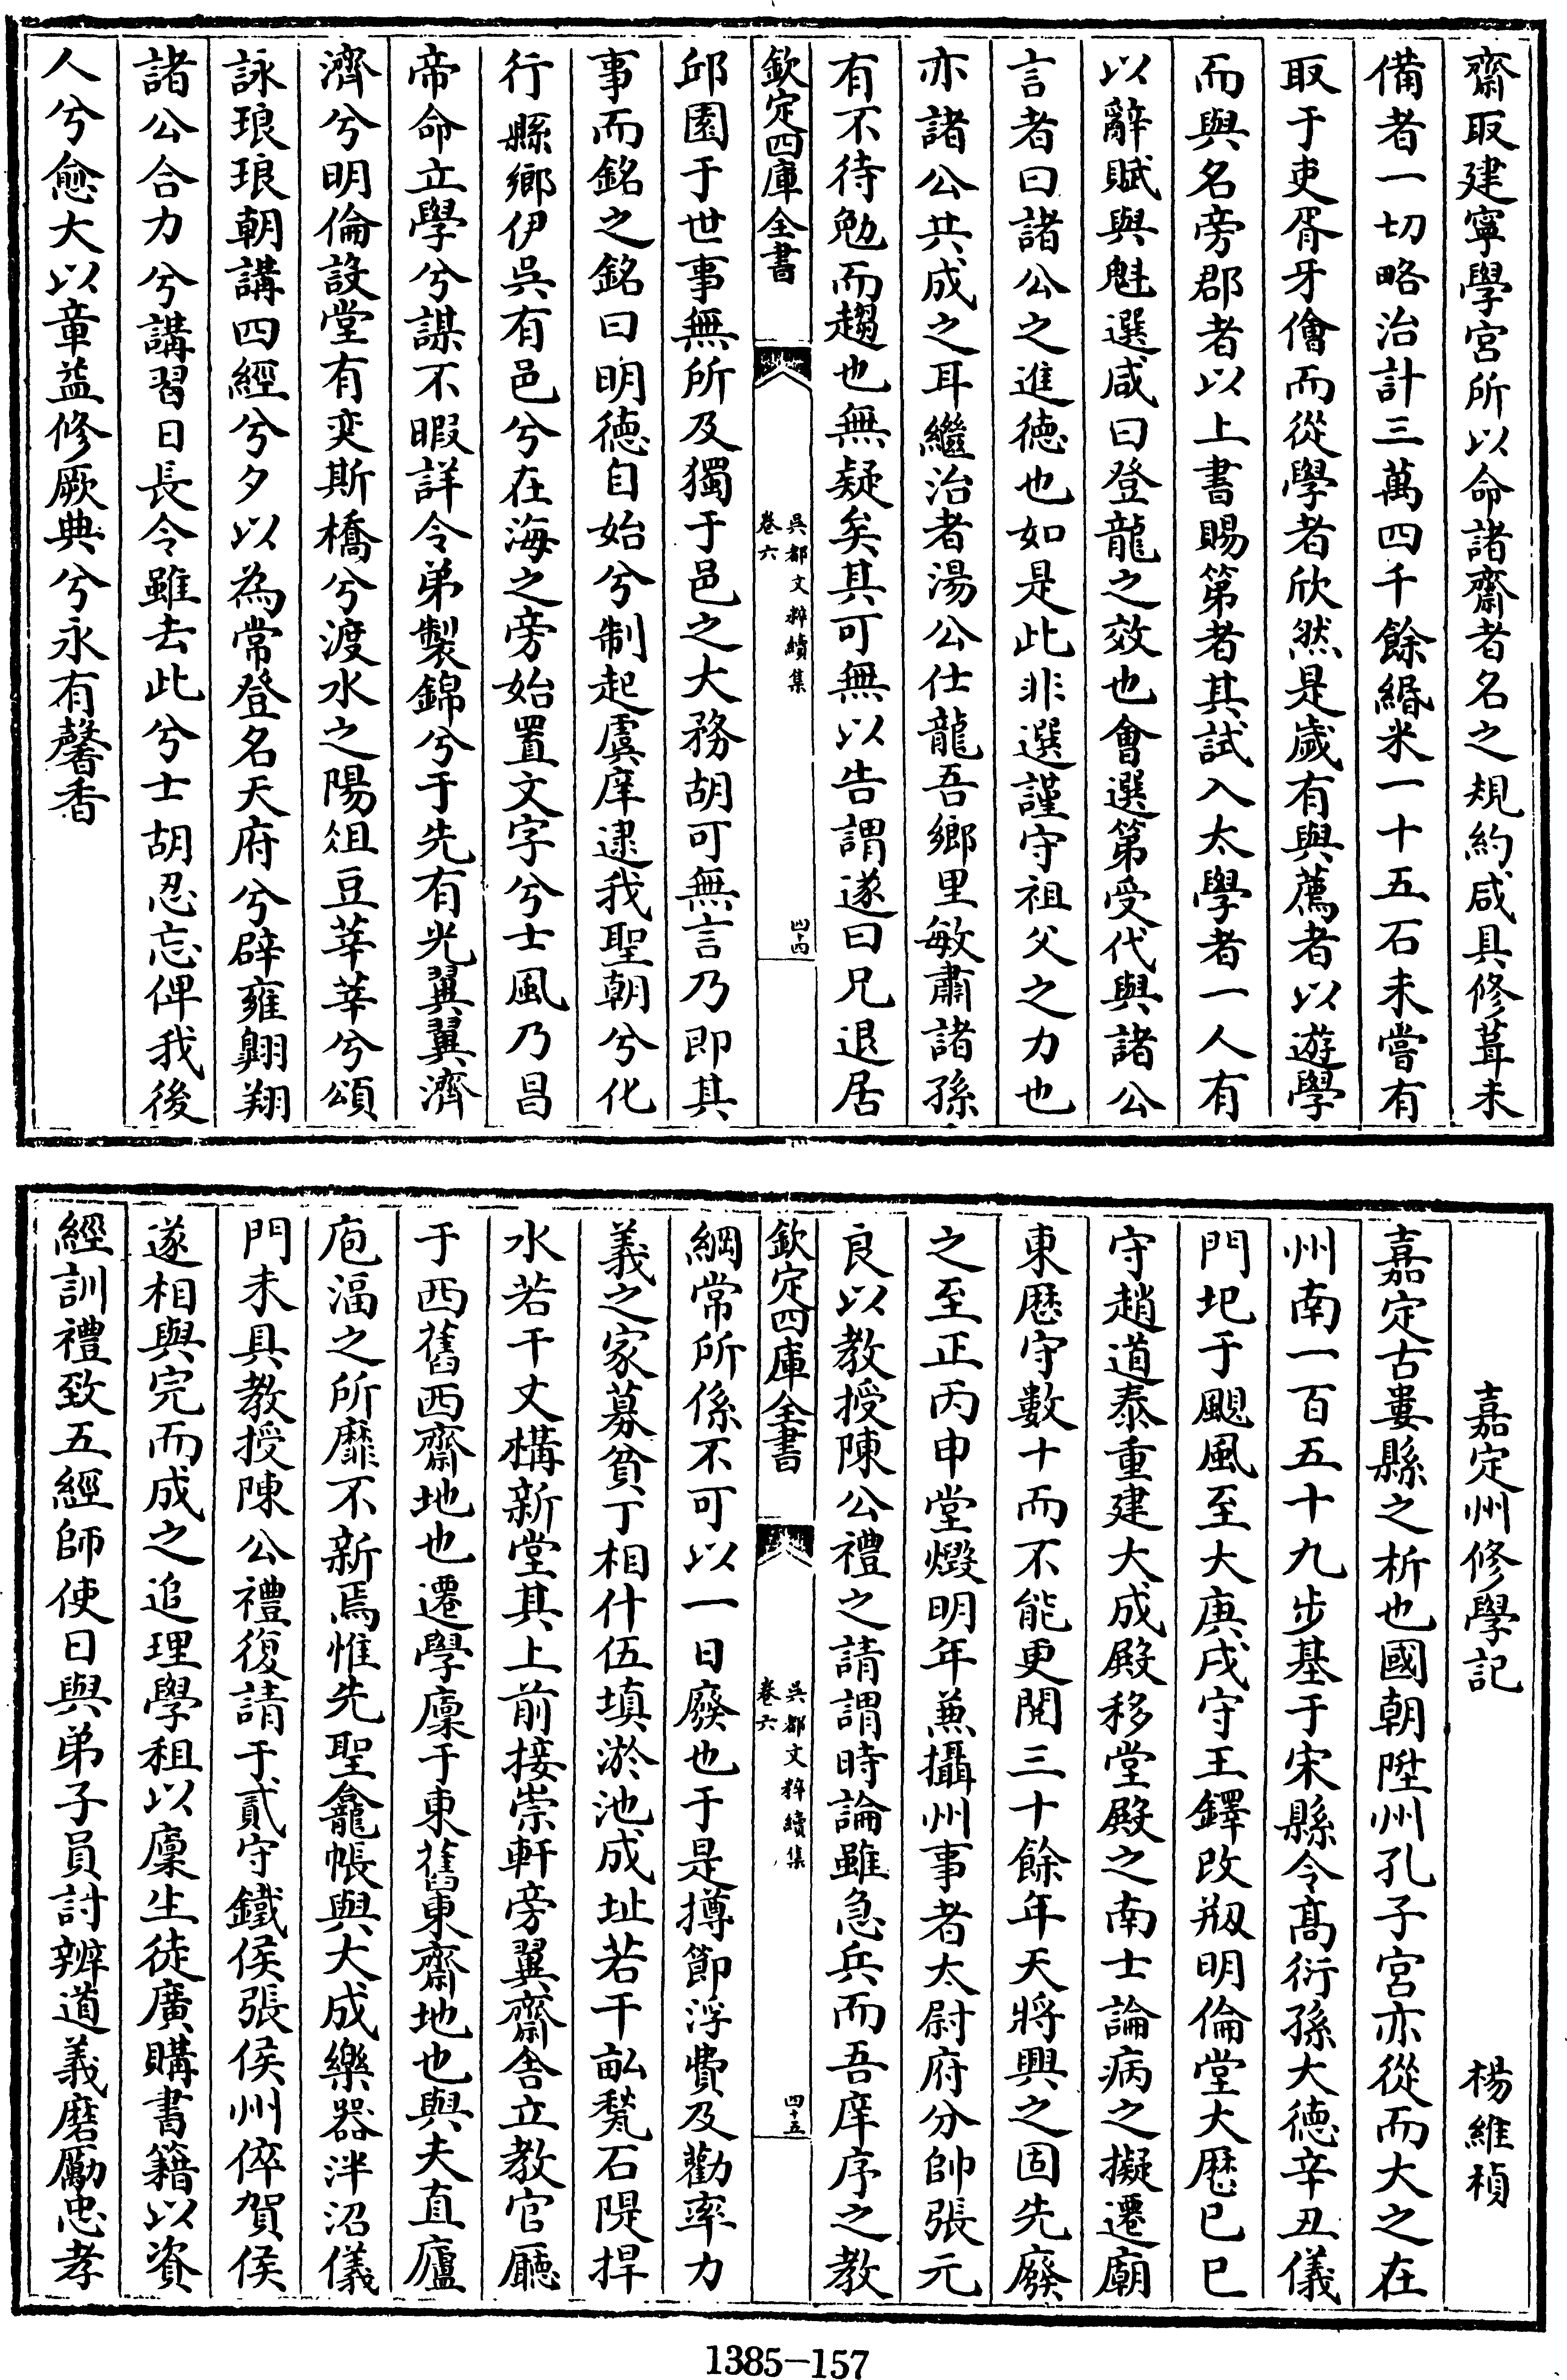 齋取建寧學宮所以命諸齋者名之規約咸具修葺未
備者一切略治計三萬四千餘緡米一十五石未嘗有
取于吏胥牙儈而從學者欣然是歲有與薦者以遊學
而與名旁郡者以上書賜第者其試入太學者一人有
以辭賦與魁選咸曰登龍之效也會選第受代與諸公
言者曰諸公之進德也如是此非選謹守祖父之力也
亦諸公共成之耳繼治者湯公仕龍吾鄉里敏肅諸孫
有不待勉而趨也無疑矣其可無以告謂遂曰兄退居
欽定四庫全書
吳都文粹續集
卷六
四十四
邱園于世事無所及獨于邑之大務胡可無言乃即其
事而銘之銘曰明德自始兮制起虞庠逮我聖朝兮化
行縣鄉伊吳有邑兮在海之旁始置文字兮士風乃昌
帝命立學兮謀不暇詳令弟製錦兮于先有光翼翼濟
濟兮明倫設堂有奕斯橋兮渡水之陽俎豆莘莘兮頌
詠琅琅朝講四經兮夕以為常登名天府兮辟雍翺翔
諸公合力兮講習日長令雖去此兮士胡忍忘俾我後
人兮愈大以章益修厥典兮永有馨香
嘉定州修學記 楊維楨
嘉定古婁縣之析也國朝陞州孔子宮亦從而大之在
州南一百五十九步基于宋縣令髙衍孫大德辛丑儀
門圮于颶風至大庚戌守王鐸改剏明倫堂大厯己巳
守趙道泰重建大成殿移堂殿之南士論病之擬遷廟
東厯守數十而不能更閱三十餘年天將興之固先廢
之至正丙申堂燬明年兼攝州事者太尉府分帥張元
良以教授陳公禮之請謂時論雖急兵而吾庠序之教
欽定四庫全書
吳都文粹續集
卷六
四十五
綱常所係不可以一日廢也于是撙節浮費及勸率力
義之家募貧丁相什伍填淤池成址若干畝甃石隄捍
水若干丈構新堂其上前接崇軒旁翼齋舍立教官廳
于西舊西齋地也遷學廩于東舊東齋地也與夫直廬
庖湢之所靡不新焉惟先聖龕帳與大成樂器泮沼儀
門未具教授陳公禮復請于貳守鐵侯張侯州倅賀侯
遂相與完而成之追理學租以廩生徒廣購書籍以資
經訓禮致五經師使日與弟子員討辨道義磨勵忠孝
1385-157